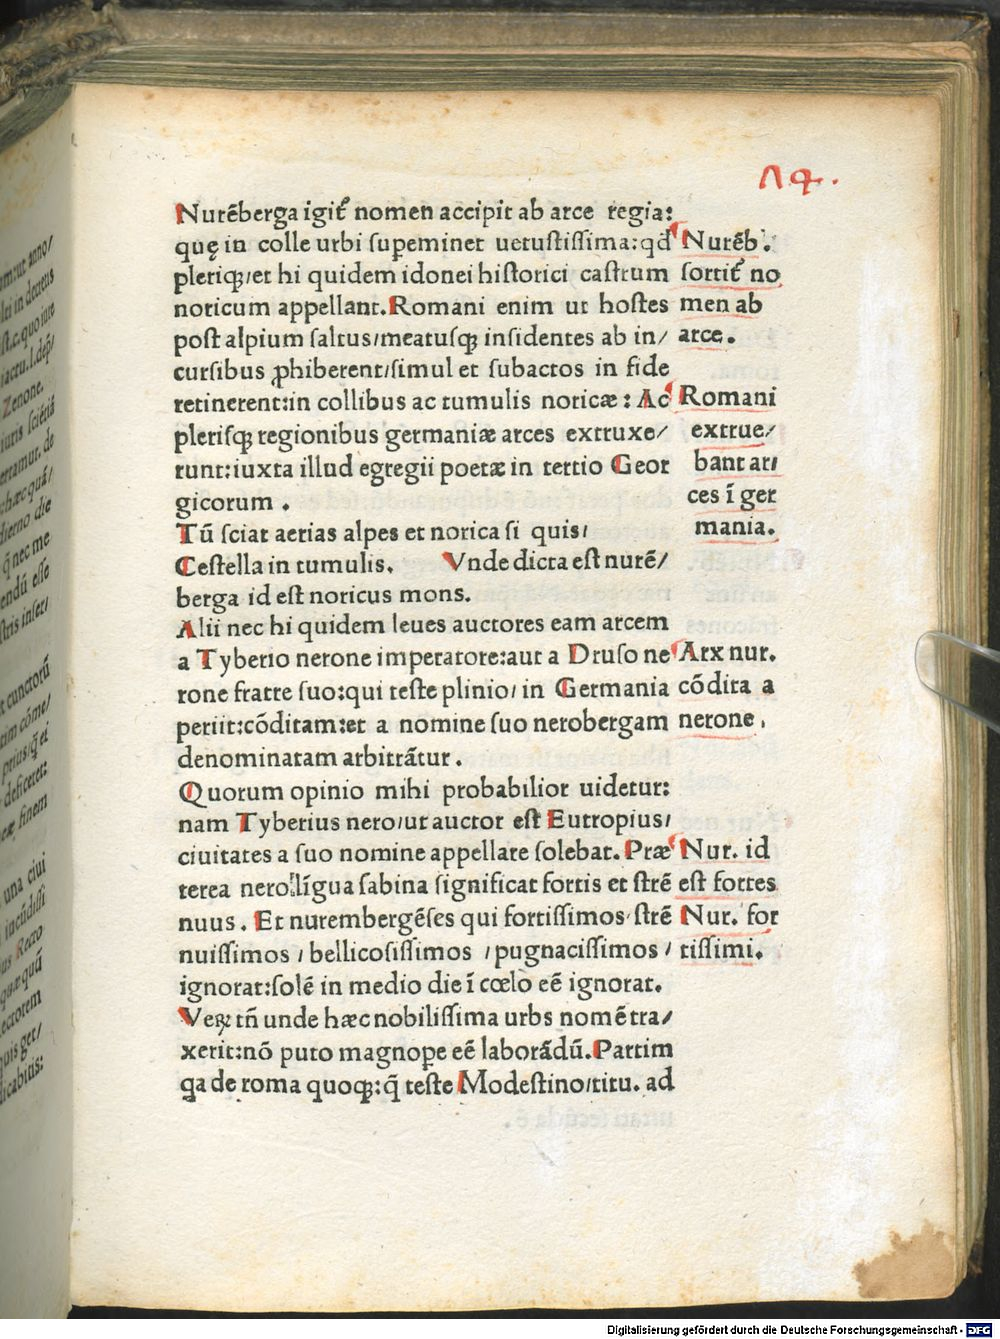 14.
Nurēberga igit᷑ nomen accipit ab arce regia:
quę in colle urbi ſuꝑeminet uetuſtiſſima: qđ
pleriqꝫ/et hi quidem idonei hiſtorici caſtrum
noricum appellant. Romani enim ut hoſtes
poſt alpium ſaltus/meatuſqꝫ inſidentes ab in/
curſibus ꝓhiberent/ſimul et ſubactos in fide
retinerent: in collibus ac tumulis noricæ: Ac
pleriſqꝫ regionibus germaniæ arces extruxe/
runt: iuxta illud egregii poetæ in tertio Geor
gicorum.
Tū ſciat aerias alpes et norica ſi quis/
Ceſtella in tumulis. Vnde dicta eſt nurē/
berga id eſt noricus mons.
Alii nec hi quidem leues auctores eam arcem
a Tyberio nerone imperatore: aut a Druſo ne
rone fratre ſuo: qui teſte plinio/in Germania
periit: cōditam: et a nomine ſuo nerobergam
denominatam arbitrātur.
Quorum opinio mihi probabilior uidetur:
nam Tyberius nero/ut auctor eſt Eutropius/
ciuitates a ſuo nomine appellare ſolebat. Præ
terea nero līgua ſabina ſignificat fortis et ſtrē
nuus. Et nurembergēſes qui fortiſſimos ſtrē
nuiſſimos/bellicoſiſſimos/pugnaciſſimos/
ignorat: ſolē in medio die ī cœlo eē ignorat.
Veꝝ tñ unde hæc nobiliſſima urbs nomē tra/
xerit: nō puto magnoꝑe eē laborādū. Partim
qa de roma quoqꝫ: q̄ teſte Modeſtino/titu. ad
Nurēb.
ſortit᷑ no
men ab
arce.
Romani
extrue/
bant ar/
ces ī ger
mania.
Arx nur.
cōdita a
nerone.
Nur. id
eſt fortes
Nur. for
tiſſimi.
Digitalisierung gefördert durch die Deutsche Forschungsgemeinschaft - DFG